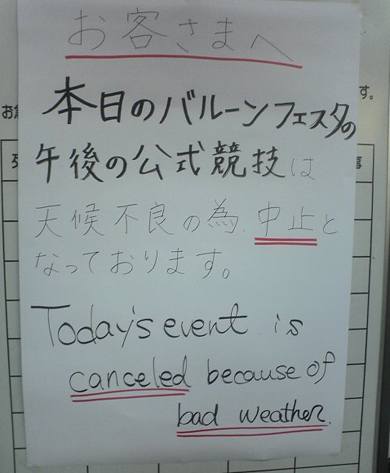 お客さまへ
本日のバルーンフェスタの
午後の公式競技は
天候不良の為、中止と
なっております。
Today's event is
canceled because of
bad weather.
す。